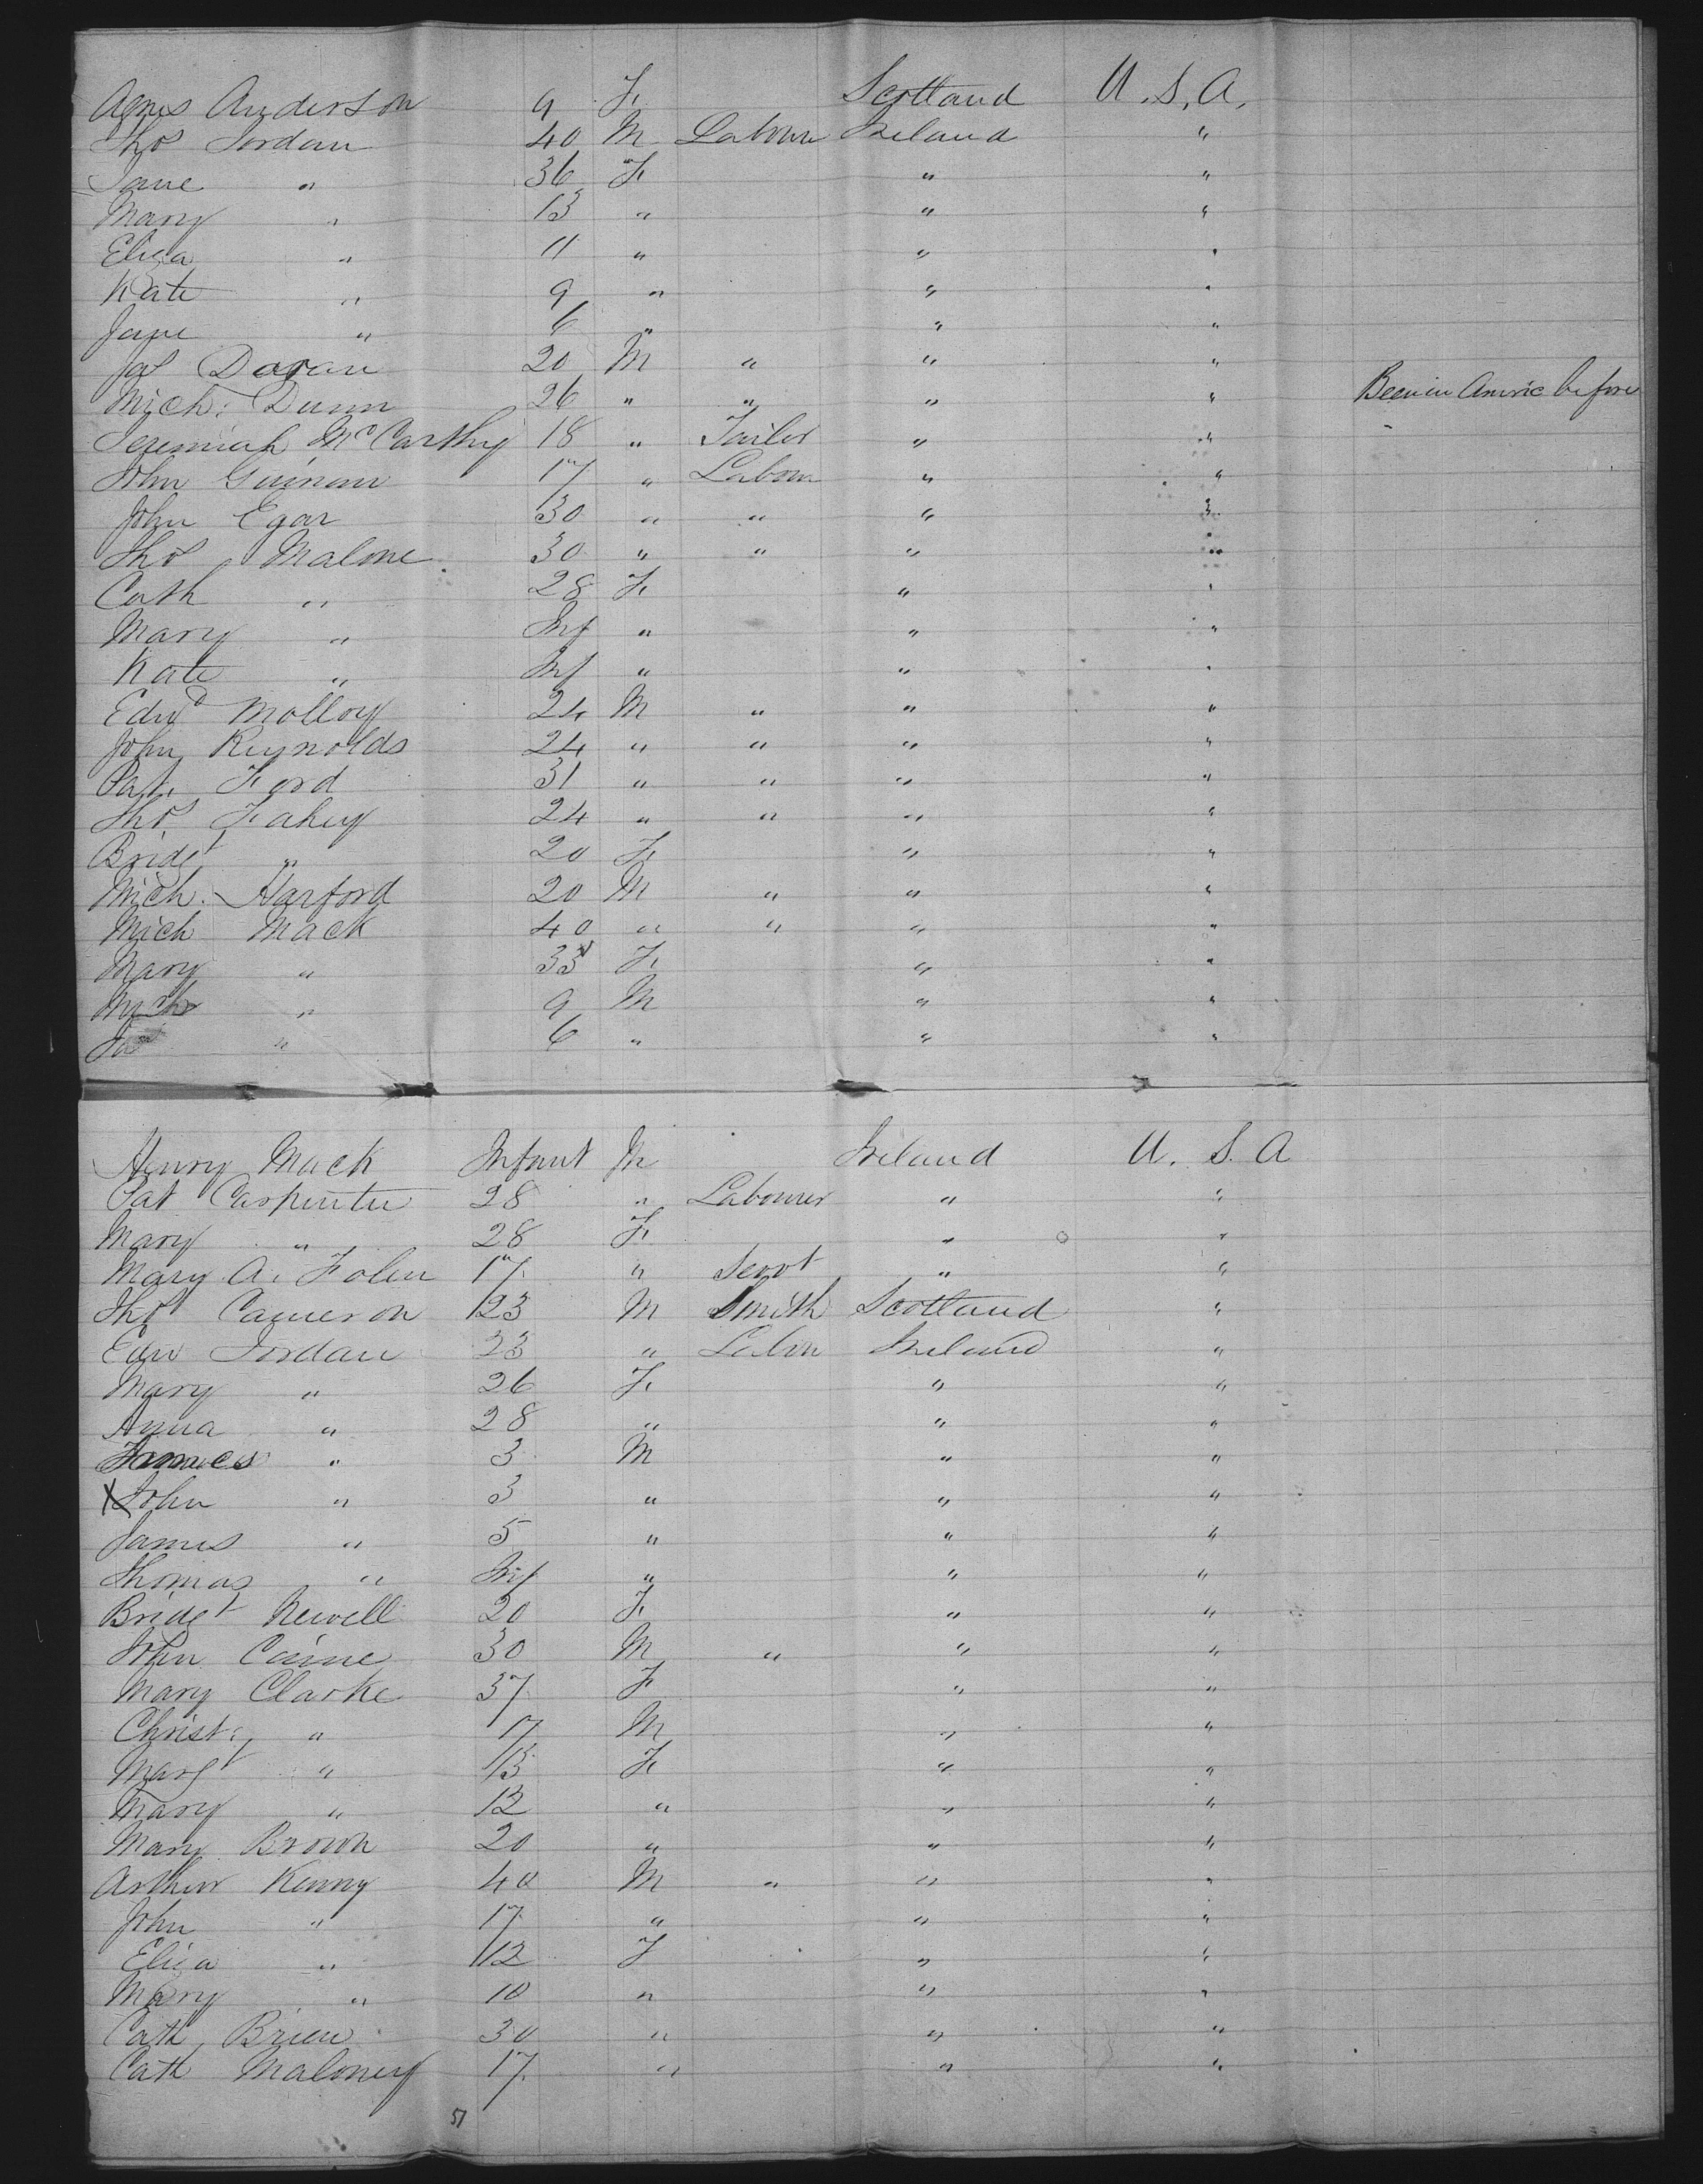 Agnes Anderson 9 F. Scotland U.S.A.
Thos Jordan 40 M Labour Ireland "
Jane " 36 F. " "
Mary " 13 " " "
Eliza " 11 " " "
Kate " 9 " " "
Jane " 6 " " "
Jas Doran 20 M " " "
Mich: Dunn 26 " " " " Been in Americ before
Jeremiah McCarthy 18 " Tailor " "
John Guinan 17 " Labour " "
John Egar 30 " " " "
Thos Malone 30 " " " "
Cath " 28 F. " "
Mary " Inf " " "
Kate " Inf " " "
Edwd Molloy 24 M " " "
John Reynolds 24 " " " "
Pat. Ford 31 " " " "
Thos. Fahey 24 " " " "
Bridgt " 20 F. " "
Mich. Harford 20 M " " "
Mich Mack 40 " " " "
Mary " 33 F. " "
Mich " 9 M " "
Jas " 6 " " "
Henry Mack Infant M Ireland U. S. A
Pat Carpenter 28 " Labourer " "
Mary " 28 F. " "
Mary A. Folen 17 " Servt " "
Thos Cameron 23 M Smith Scotland "
Edw Jordan 23 " Labou Ireland "
Mary " 26 F. " "
Anna " 28 " " "
" 3 M " "
X John " 3 " " "
James " 5 " " "
Thomas " Inf " " "
Bridgt Newell 20 F. " "
John Caine 30 M " " "
Mary Clarke 37 F " "
Christ: " 17 M " "
Margt " 13 F. " "
Mary " 12 " " "
Mary Brown 20 " " "
Arthur Kenny 40 M " " "
John " 17 " " "
Eliza " 12 F " "
Mary " 10 " " "
Cath Brien 30 " " "
Cath Maloney 17 " " "
51